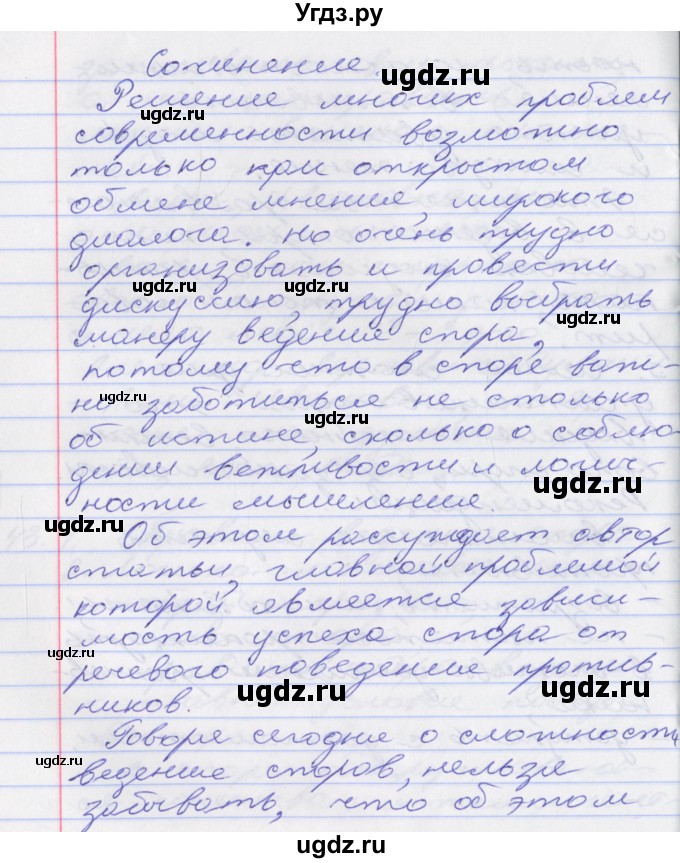 Угдз.ру
Сочинение.
Решение многих проблем
современности возможно
только при открытом
обмене мнение, широкого
диалога. Но очень трудно
организовать и провести
дискуссию, трудно выбрать
манеру ведения спора,
потому что в споре важ-
но заботиться не столько
об истине, сколько о соблю-
дении вежливости и логич-
ности мышления.
Об этом рассуждает автор
статьи, главной проблемой
которой является зависи-
мость успеха спора от
речевого поведение против-
ников.
Говоря сегодня о сложности
ведение споров, нельзя
забывать, что об этом
ugdz.ru
ugdz.ru
ugdz.ru
ugdz.ru
ugdz.ru
ugdz.ru
ugdz.ru
ugdz.ru
ugdz.ru
ugdz.ru
ugdz.ru
ugdz.ru
ugdz.ru
ugdz.ru